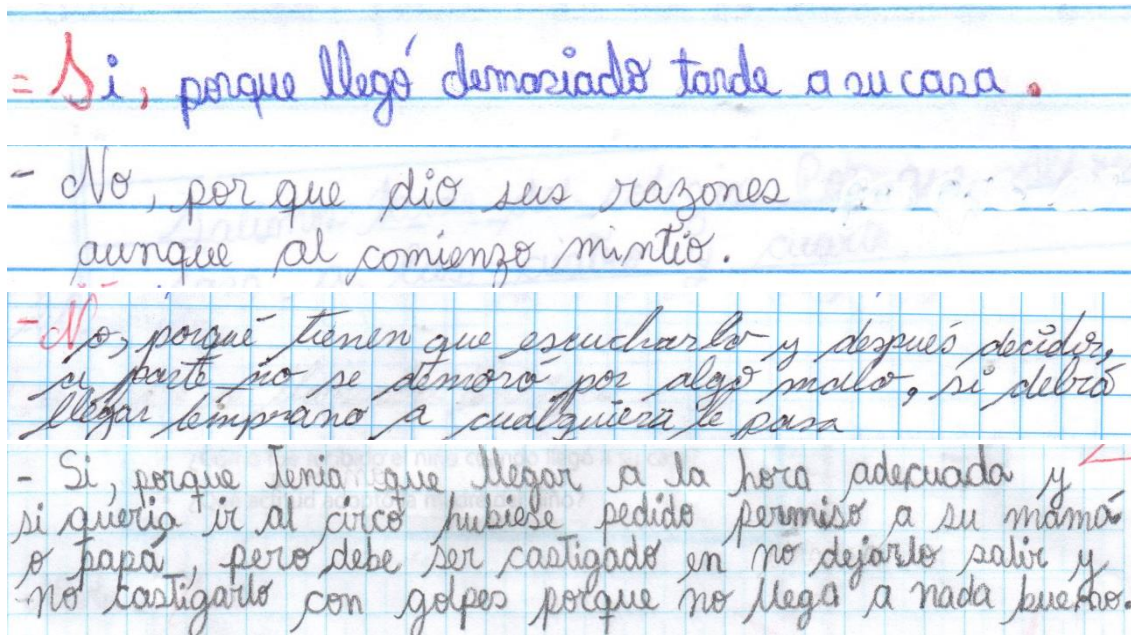 = Si, porque llegó demasiado tarde a su casa.
- No, por que dio sus razones
aunque al comienzo mintió.
- No, porqué tienen que escucharlo y después decidir,
a parte no se demoró por algo malo, si debió
llegar temprano a cualquiera le pasa
- Si, porque tenia que llegar a la hora adecuada y
si queria ir al circo hubiese pedido permiso a su mamá
o papá, pero debe ser castigado en no dejarlo salir y
no castigarlo con golpes porque no llega a nada bueno.